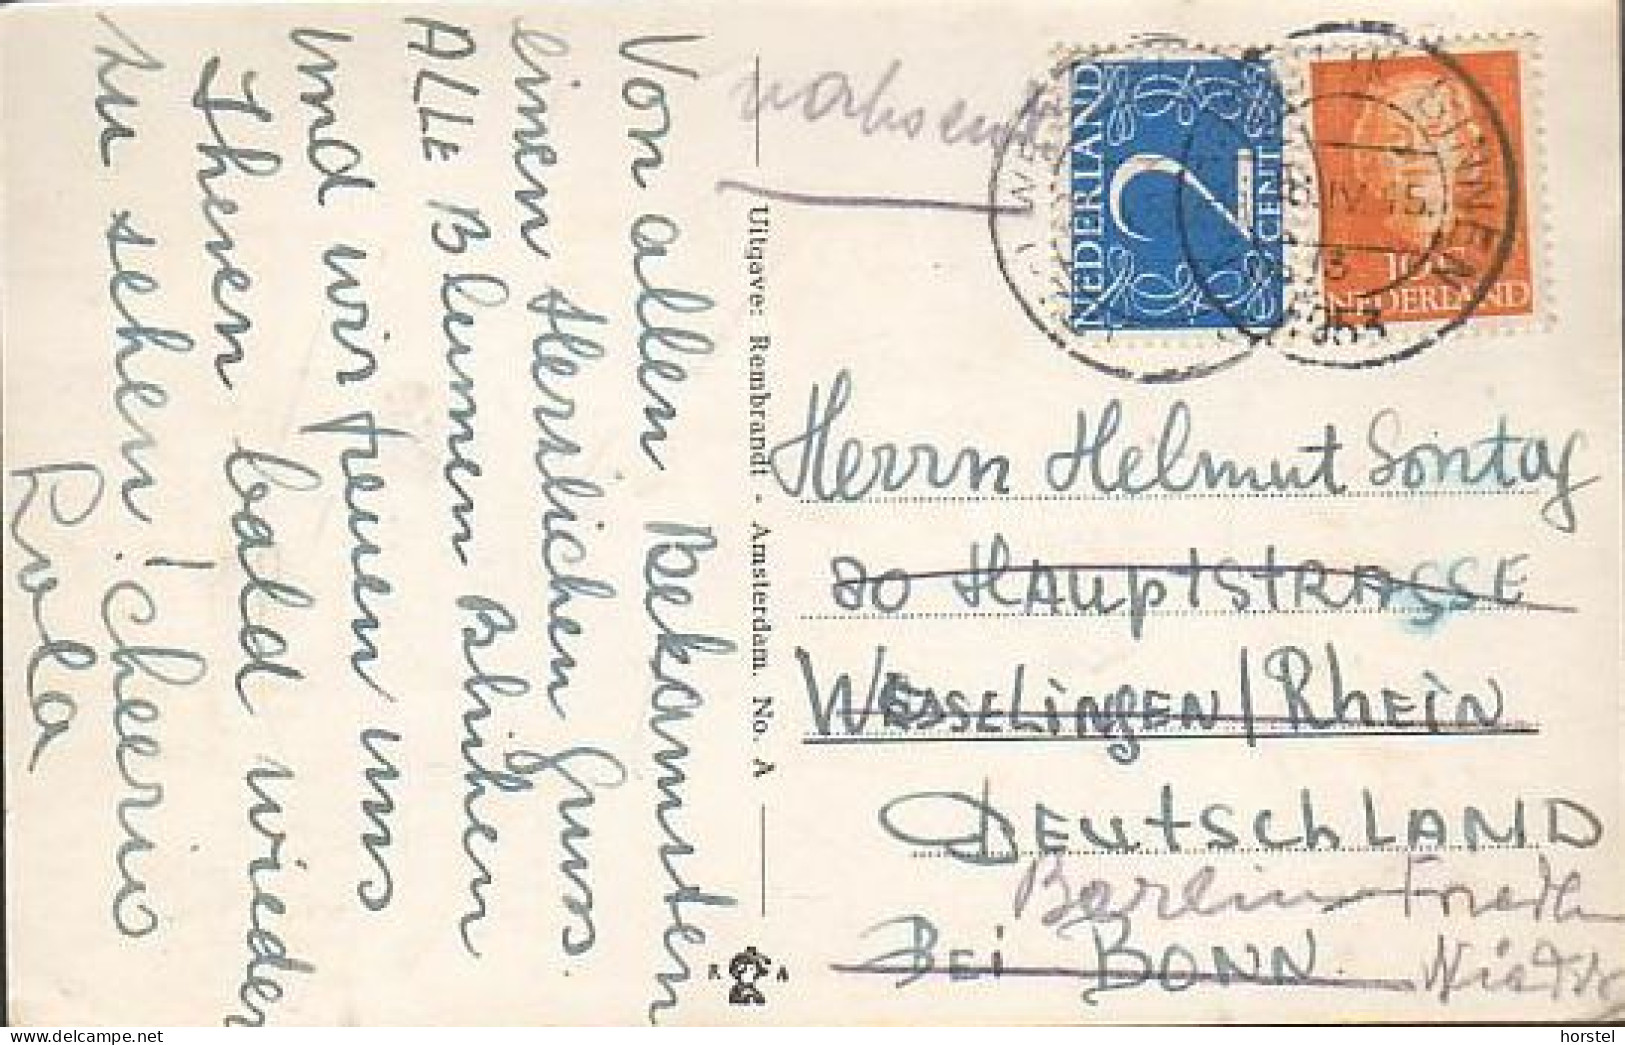 Von allen Bekannten
einen Herslichen Gruss
ALLE Blumen Blühen
und wir freuen uns
Ihnen bald wieder
zu sehen! cheerio
Rola
Uitgave: Rembrandt - Amsterdam. No. A
R A
nachsenden
NEDERLAND
2
CENT
10 C
NEDERLAND
1953
Herrn Helmut Sontag
20 HAuptstRASSE
WESSELingEN/RheiN
DEutschLAND
Bei BONN
Berlin-
horstel